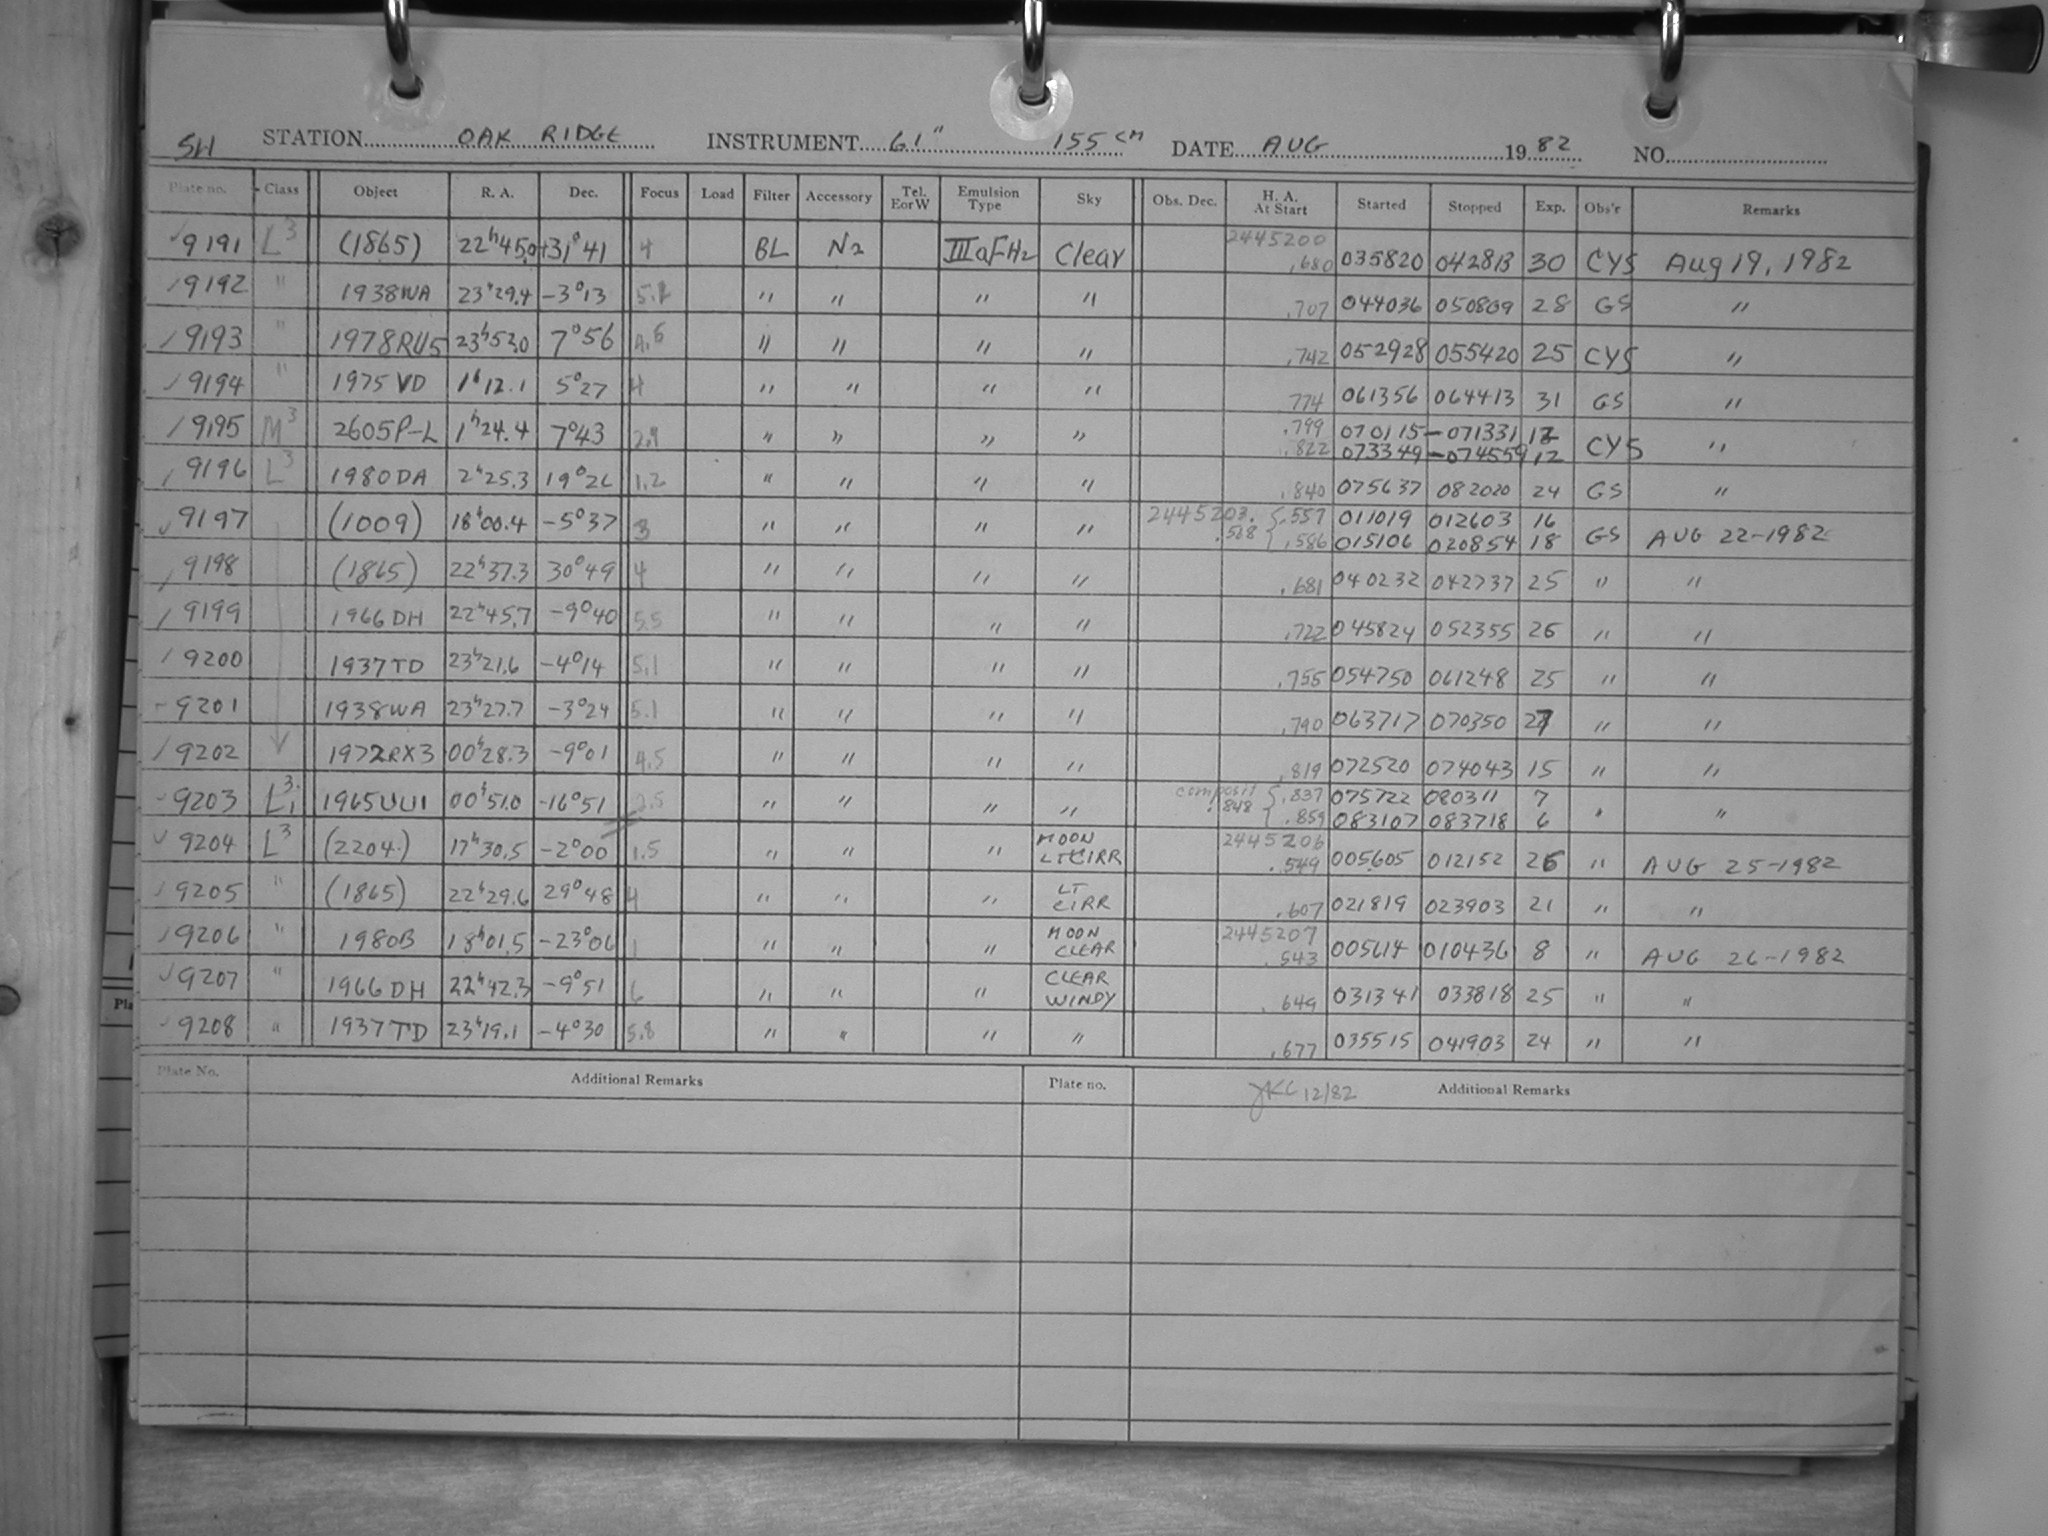 SH STATION OAK RIDGE INSTRUMENT 61" 155 cm DATE AUG 1982 NO.
Plate no. Class Object R. A. Dec. Focus Load Filter Accessory Tel. E or W Emulsion Type Sky Obs. Dec. H. A. At Start Started Stopped Exp. Obs'r Remarks
✓ 9191 L3 (1865) 22h45.0 +31°41 4 BL N2 IIIaFH2 Clear 2445200 .680 035820 042813 30 CYS Aug 19, 1982
/ 9192 " 1938WA 23h29.4 -3°13 " " " " .707 044036 050809 28 GS "
/ 9193 " 1978RU5 23h53.0 7°56 4.6 " " " " .742 052928 055420 25 CYS "
/ 9194 " 1975VD 1h12.1 5°27 4 " " " " .774 061356 064413 31 GS "
/ 9195 M3 2605P-L 1h24.4 7°43 2.9 " " " " .799 070115 - 071331 12 CYS "
.822 073349 - 074559 12
/ 9196 L3 1980DA 2h25.3 19°26 1.2 " " " " .840 075637 082020 24 GS "
✓ 9197 (1009) 18h00.4 -5°37 3 " " " " 2445203. { .557 011019 012603 16 GS AUG 22-1982
.568 .586 015106 020854 18
/ 9198 (1865) 22h37.3 30°49 4 " " " " .681 040232 042737 25 " "
/ 9199 1966DH 22h45.7 -9°40 5.5 " " " " .722 045824 052355 26 " "
/ 9200 1937TD 23h21.6 -4°14 5.1 " " " " .755 054750 061248 25 " "
- 9201 1938WA 23h27.7 -3°24 5.1 " " " " .790 063717 070350 27 " "
/ 9202 1972RX3 00h28.3 -9°01 4.5 " " " " .819 072520 074043 15 " "
- 9203 L3,1 1965UU1 00h51.0 -16°51 2.5 " " " " composit { .837 075722 080311 7 " "
.848 .859 083107 083718 6
✓ 9204 L3 (2204) 17h30.5 -2°00 1.5 " " " MOON LTCIRR 2445206 .549 005605 012152 26 " AUG 25-1982
/ 9205 " (1865) 22h29.6 29°48 4 " " " LT CIRR .607 021819 023903 21 " "
/ 9206 " 1980B 18h01.5 -23°06 1 " " " MOON CLEAR 2445207 .543 005614 010436 8 " AUG 26-1982
✓ 9207 " 1966DH 22h42.3 -9°51 6 " " " CLEAR WINDY .649 031341 033818 25 " "
✓ 9208 " 1937TD 23h19.1 -4°30 5.8 " " " " .677 035515 041903 24 " "
Plate No. Additional Remarks Plate no. JKC 12/82 Additional Remarks
Pla